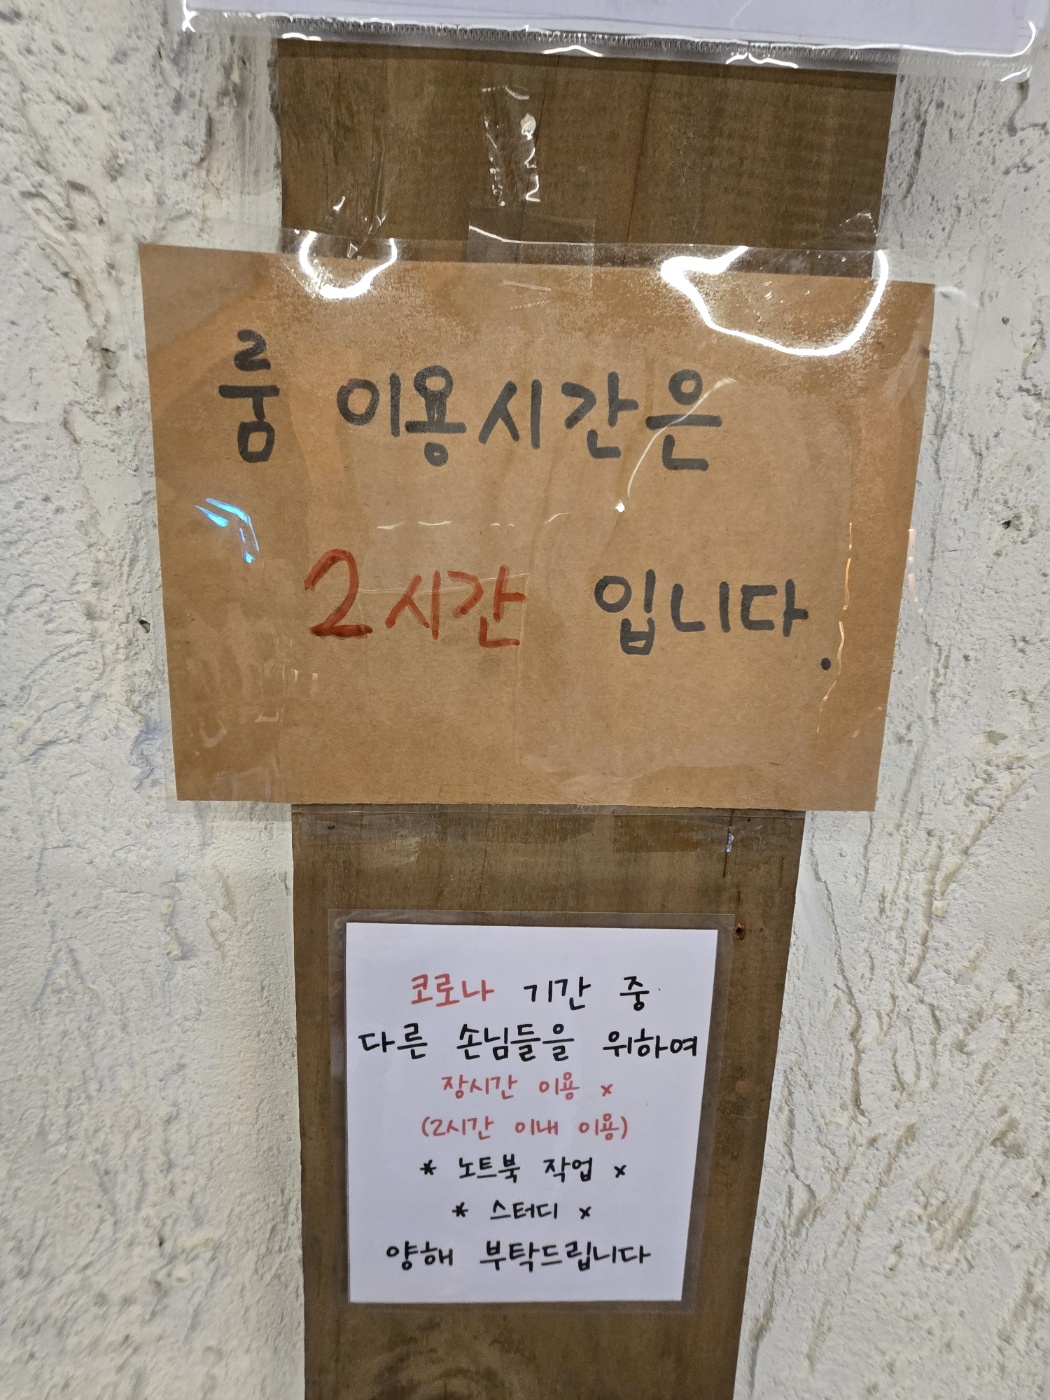 룸 이용시간은
2시간 입니다.
코로나 기간 중
다른 손님들을 위하여
장시간 이용 x
(2시간 이내 이용)
* 노트북 작업 x
* 스터디 x
양해 부탁드립니다